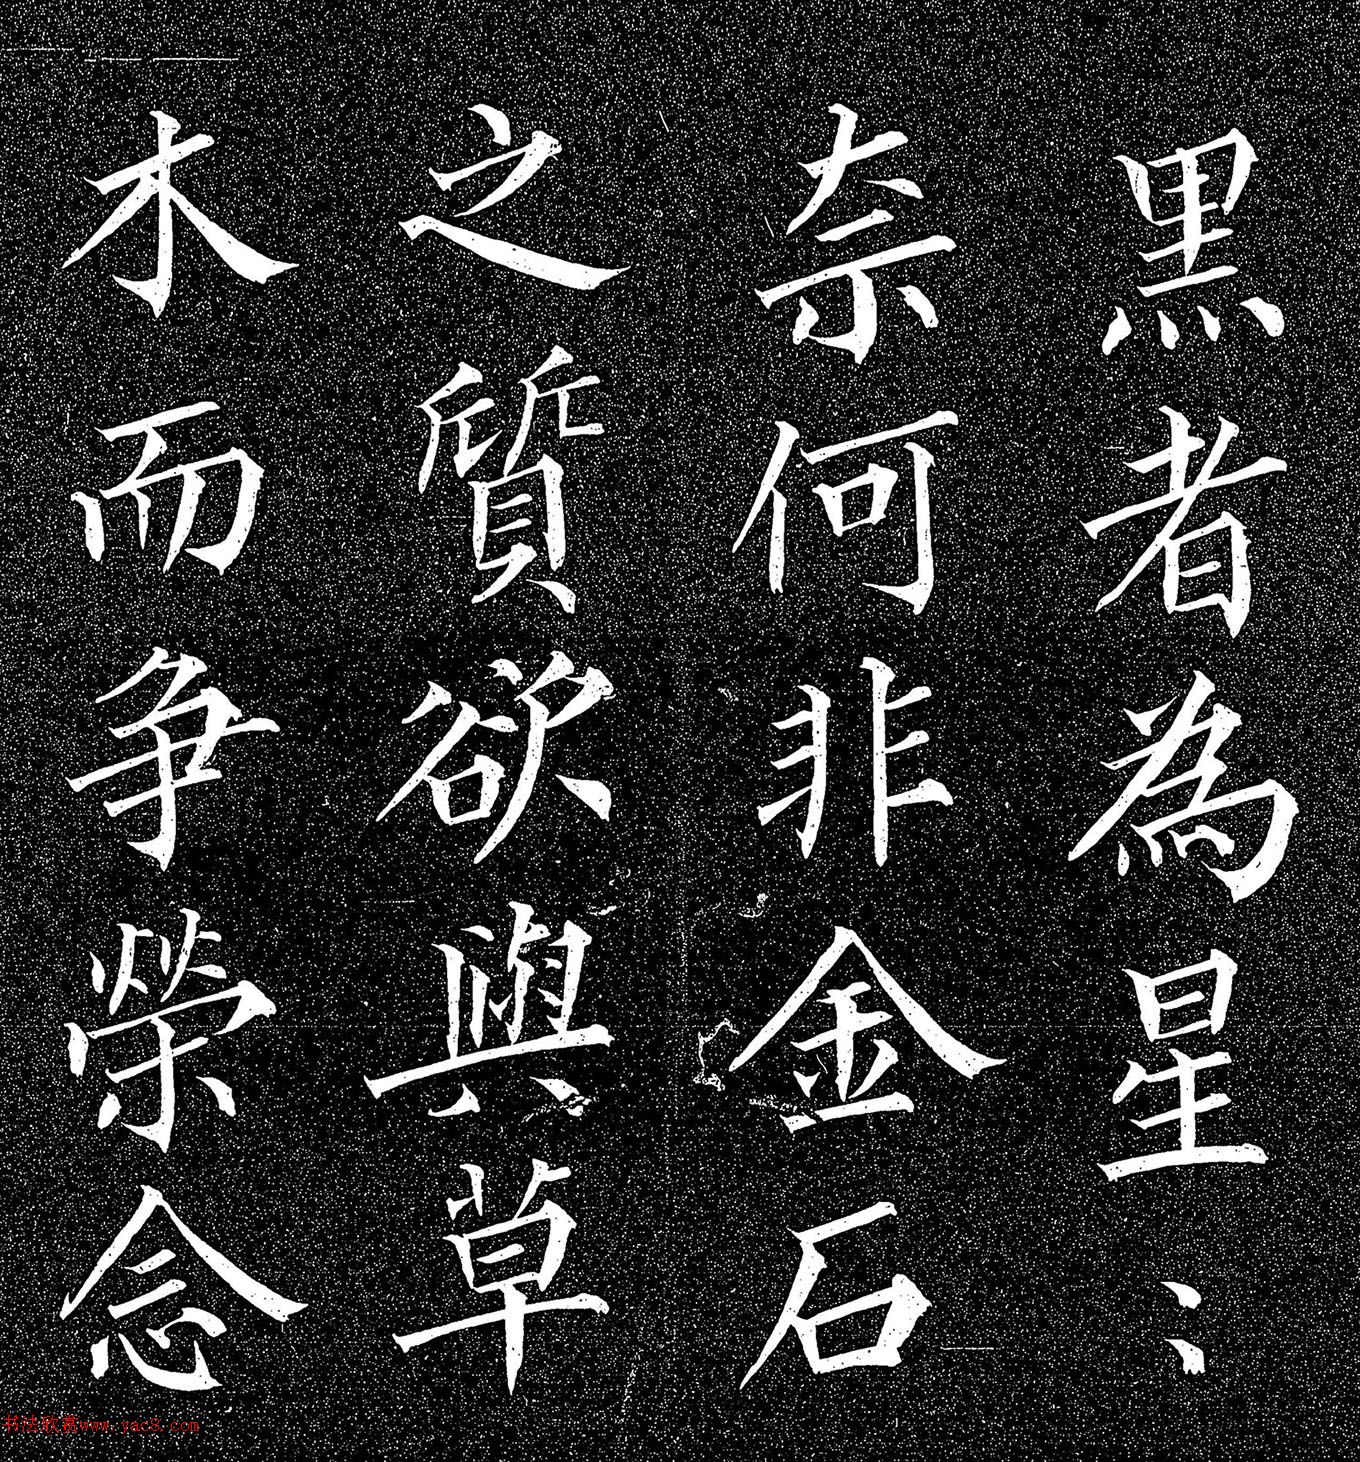 黑者為星〻
奈何非金石
之質欲與草
木而争榮念
书法欣赏www.yac8.com